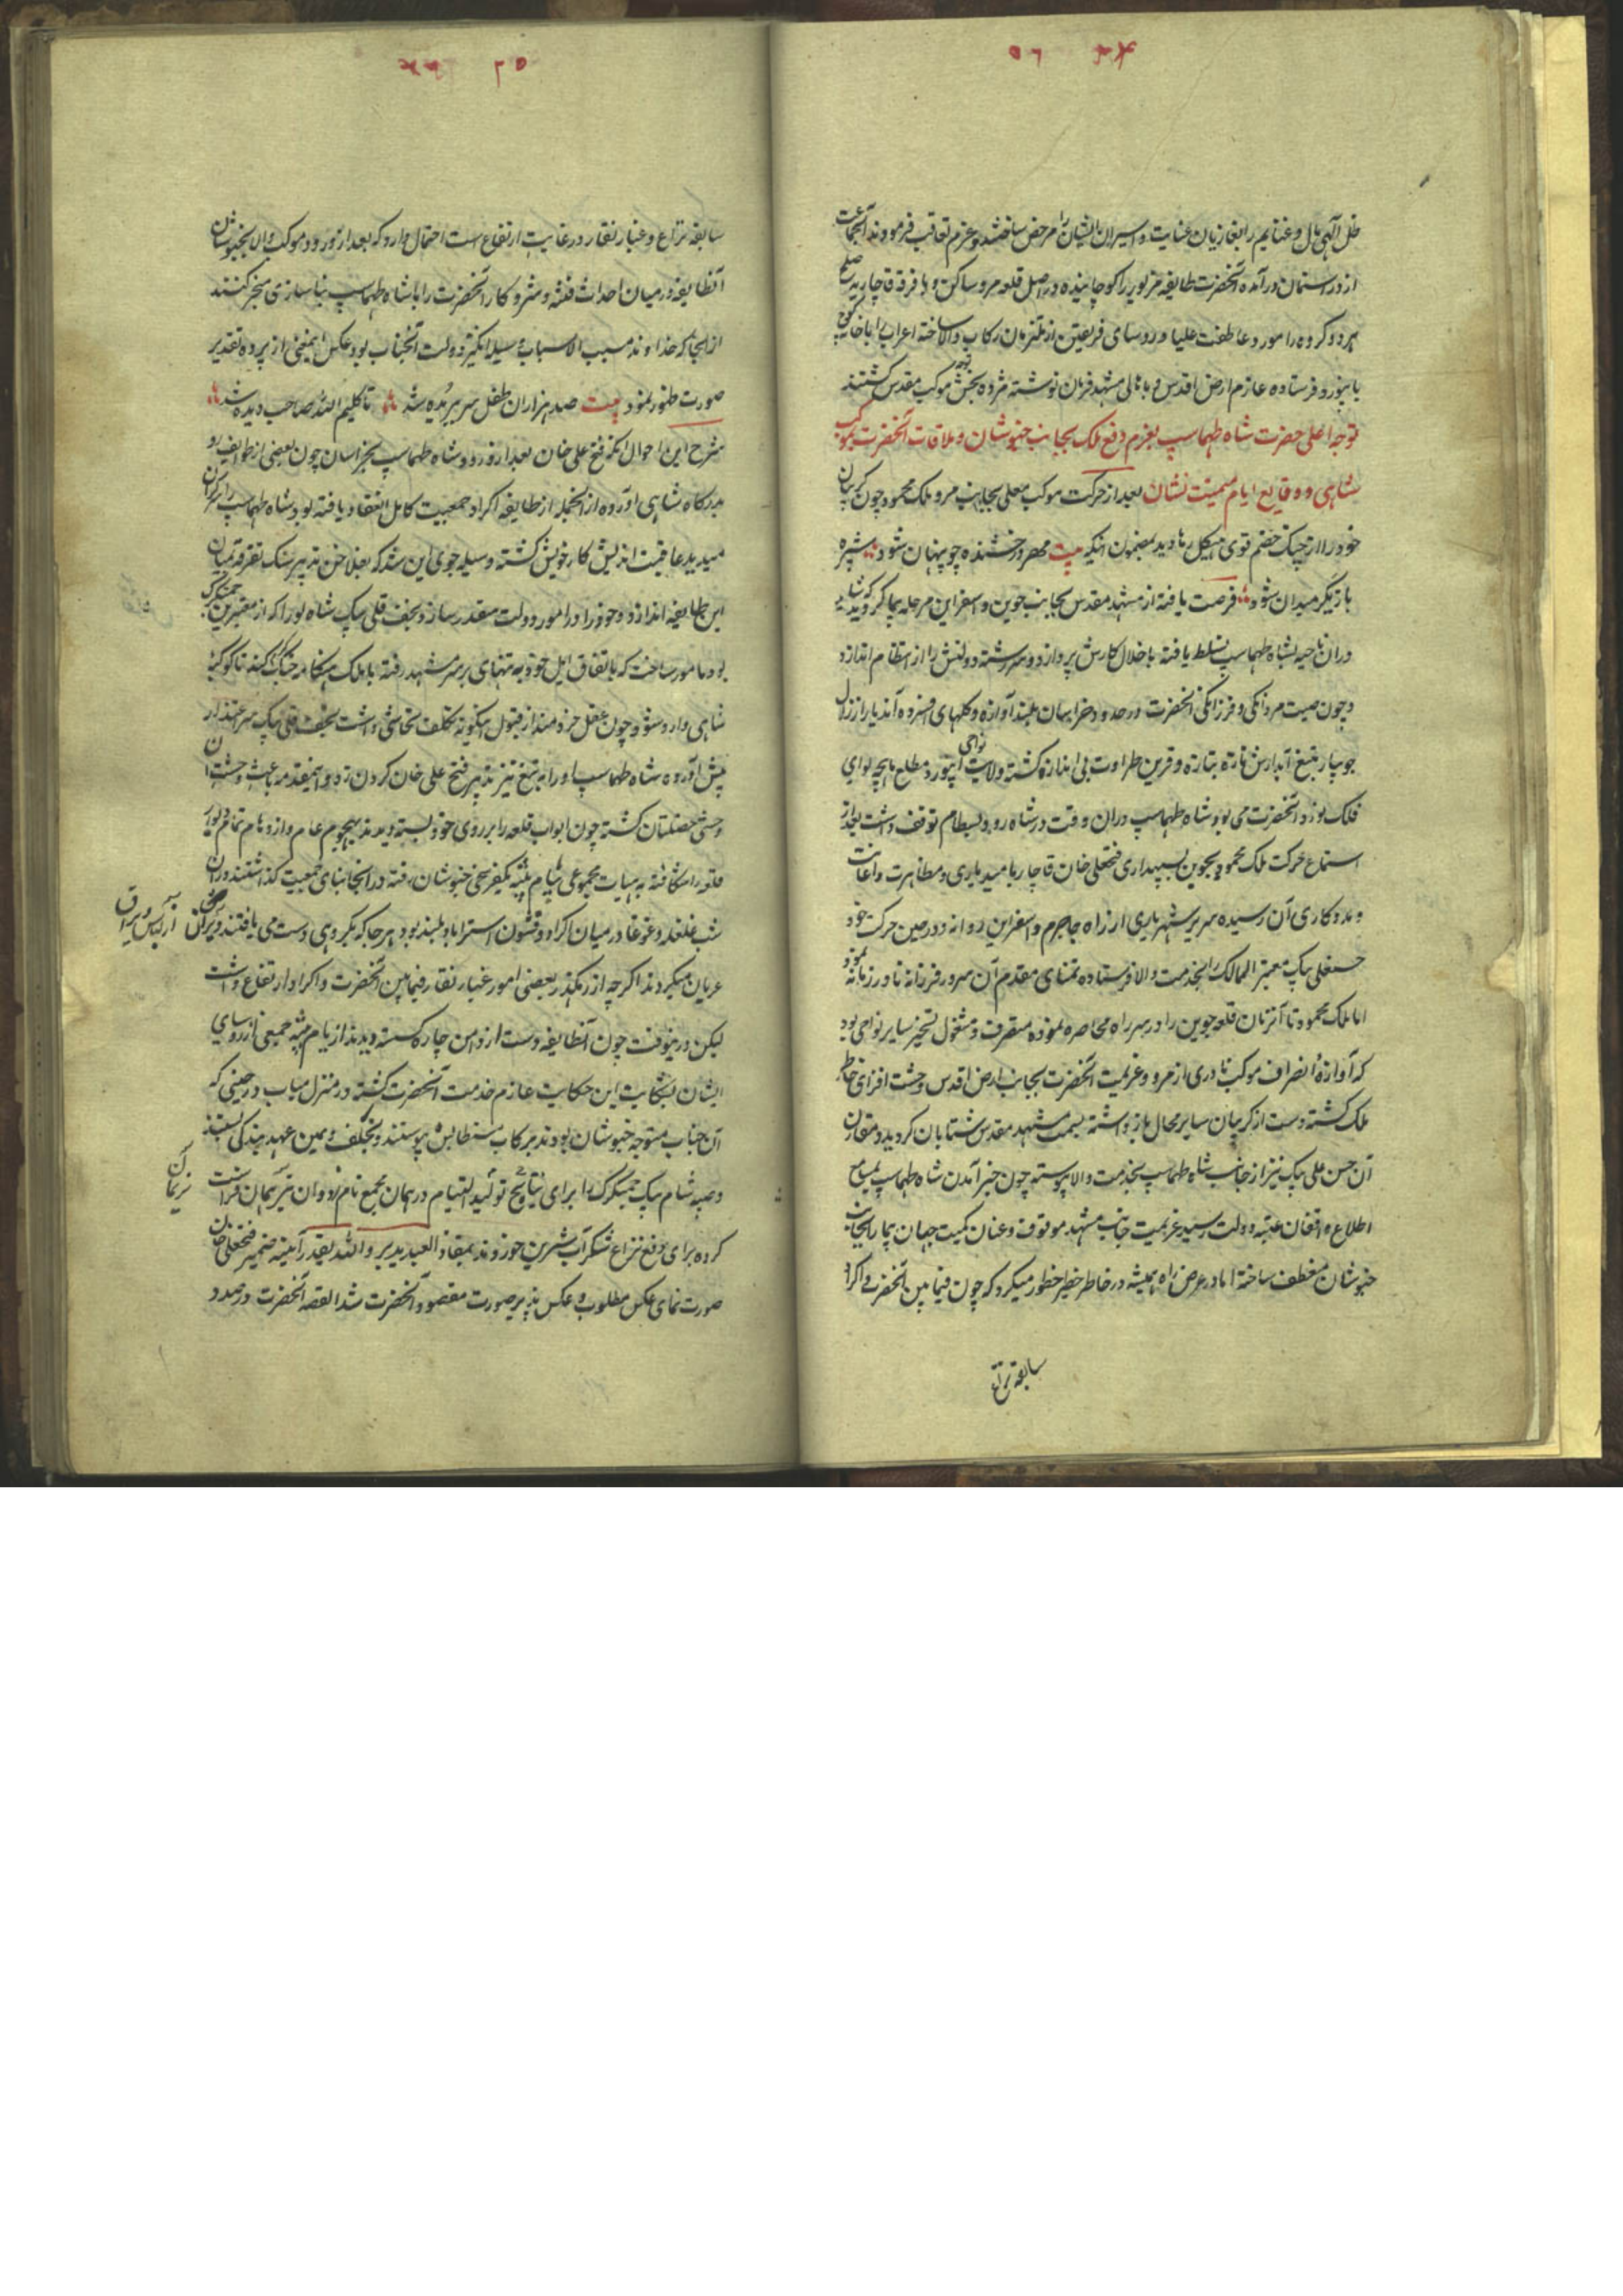 ظل آلهی مال و غنایم را بغازیان عنایت و اسیران ایشان را مرخص ساختند و عزم تعاقب فرمودند آنجماعت
از در استیمان درآمده آنحضرت طایفه مزبور را کوچانیده در اصل قلعه مرو ساکن و با فرقه قاجاریه صلح
هر دو کروه را مورد عاطفت علیا و روسای فریقین از ملتزمان رکاب والا ساخته اعراب را با خانه کوچ
بابیورد فرستاده عازم ارض اقدس و باهالی مشهد فرمان نوشته مژده بخش توجه موکب مقدس کشتند
توجه اعلی حضرت شاه طهماسپ بعزم دفع ملک بجانب خبوشان و ملاقات آنحضرت بموکب
شاهی و وقایع ایام میمنت نشان بعد از حرکت موکب معلی بجانب مرو ملک محمود چون کریبان
خود را از چنک خصم قوی هیکل رها دید بمضمون آنکه بیت مهر درخشنده چو پنهان شود شپره
بازیکر میدان شود فرصت یافته از مشهد مقدس بجانب جوین و اسفراین مرحله پیما کردید که شاید
در آن ناحیه بشاه طهماسپ تسلط یافته باخلال کارش پردازد و سررشته دولتش را از انتظام اندازد
و چون صیت مردانکی و فرزانکی آنحضرت در حدود خراسان بلند آوازه و کلهای افسرده آندیار از زلال
جویبار تیغ آبدارش تازه بتازه و قرین طراوت بی اندازه کشته ولایت نواحی ابیورد مطلع ماهچه لوای
فلک نورد آنحضرت می بود و شاه طهماسپ در آن وقت در شاه رود و بسطام توقف داشت بعد از
استماع حرکت ملک محمود بجوین بسپهداری فتحعلی خان قاجار بامید یاری و مظاهرت و اعانت
و مددکاری آن رسیده سریر شهریاری از راه جاجرم و اسفراین روانه و در حین حرکت خود
حسنعلی بیک معیر الممالک را بخدمت والا فرستاده تمنای مقدم آن سرور فرزانه نادر زمانه نمود
اما ملک محمود تا آنزمان قلعه جوین را در سر راه محاصره نموده متصرف و مشغول تسخیر سایر نواحی بود
که آوازهٔ انصراف موکب نادری از مرو و عزیمت آنحضرت بجانب ارض اقدس وحشت افزای خاطر
ملک کشته دست از کریبان سایر محال باز داشته بسمت مشهد مقدس شتابان کردید و مقارن
آن حسن علی بیک نیز از جانب شاه طهماسپ بخدمت والا پیوسته چون خبر آمدن شاه طهماسپ بمسامع
اطلاع واقفان عتبه دولت رسید عزیمت جانب مشهد موقوف و عنان کمیت جهان پیما را بجانب
خبوشان منعطف ساخته اما در عرض راه همیشه در خاطر خطیر خطور میکرد که چون فیمابین آنحضرت و اکراد
سابقه نزاع
سابقه نزاع و غبار نقار در غایت ارتفاع است احتمال دارد که بعد از ورود موکب والا بخبوشان
آنطایفه در میان احداث فتنه و شر و کار آنحضرت را با شاه طهماسپ بناسازی منجر کنند
از آنجا که خداوند مسبب الاسباب وسیله انکیز دولت آنجناب بود عکس اینمعنی از پرده تقدیر
صورت ظهور نمود بیت صد هزاران طفل سر ببریده شد تا کلیم الله صاحب دیده شد
شرح این احوال آنکه فتح علی خان بعد از ورود شاه طهماسپ بخراسان چون بعضی از طوایف رو
بدرکاه شاهی آورده از آنجمله از طایفه اکراد جمعیت کامل انعقاد یافته بود شاه طهماسپ را نکران
میدید عاقبت اندیش کار خویش کشته وسیله جوی این شد که بفلاخن تدبیر سنک تفرقه بمیان
این طایفه اندازد و خود را در امور دولت مقدر سازد نجف قلی بیک شادلو را که از معتبرین چمشکزک
بود مامور ساخت که باتفاق ایل خود به تنهای بر سر مشهد رفته با ملک هنکامه جنک کند تا کوکبه
شاهی وارد شود چون عقل خردمند از قبول اینکونه تکلف تحاشی داشت نجف قلی بیک سر اعتذار
پیش آورده شاه طهماسپ او را به تیغ تیز تدبیر فتح علی خان کردن زد و اینمقدمه باعث وحشت آن
وحشی خصلتان کشته چون ابواب قلعه را بر روی خود بسته دیدند بهجوم عام و ازدحام تمام دیوار
قلعه را شکافته به هیات مجموعی بیام پشته یکفرسخی خبوشان رفته در آنجا بنای جمعیت کذاشتند در آن
شب غلغله و غوغا در میان اکراد و قشون استراباد بلند بود هر جا که بکروهی دست می یافتند دیکران را
از لباس و یراق
عریان میکردند اکرچه از رهکذر بعضی امور غبار نقار فیمابین آنحضرت و اکراد ارتفاع داشت
لیکن در ینوقت چون آنطایفه دست از دامن چاره کسسته دیدند از بام پشته جمعی از روسای
ایشان بشکایت این حکایت عازم خدمت آنحضرت کشته در منزل میاب در حینی که
آن جناب متوجه خبوشان بودند برکاب مستطابش پیوستند و تحلف و یمین عهد بندکی بستند
و صبیه شام بیک چمشکزک را برای نتایج تولید التیام در همان مجمع نامزد
کرده برای رفع نزاع شکر آب شیرین خوردند بمفاد العبد یدبر والله یقدر آینه ضمیر فتحعلی خان
صورت نمای عکس مطلوب و عکس پذیر صورت مقصود آنحضرت شد القصه آنحضرت در صدد